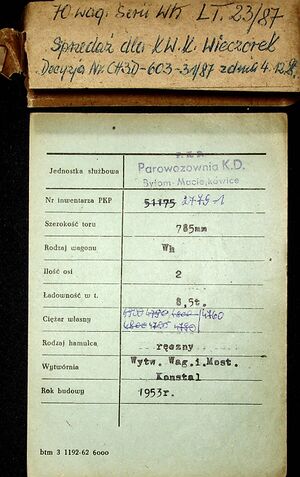 10 wag. Serii Wh LT. 23/87
Sprzedaż dla K.W.K. Wieczorek
Decyzja Nr. CH3D-603-31/87 z dnia 4.12.8
P.K.P.
Jednostka służbowa Parowozownia K.D.
Bytom-Maciejkowice
Nr inwentarza PKP 51175 2779-1
Szerokość toru 785mm
Rodzaj wagonu Wh
Ilość osi 2
Ładowność w t. 8,5t.
Ciężar własny 4760
Rodzaj hamulca ręczny
Wytwórnia Wytw. Wag.i.Most.
Konstal
Rok budowy 1953r.
btm 3 1192-62 6000